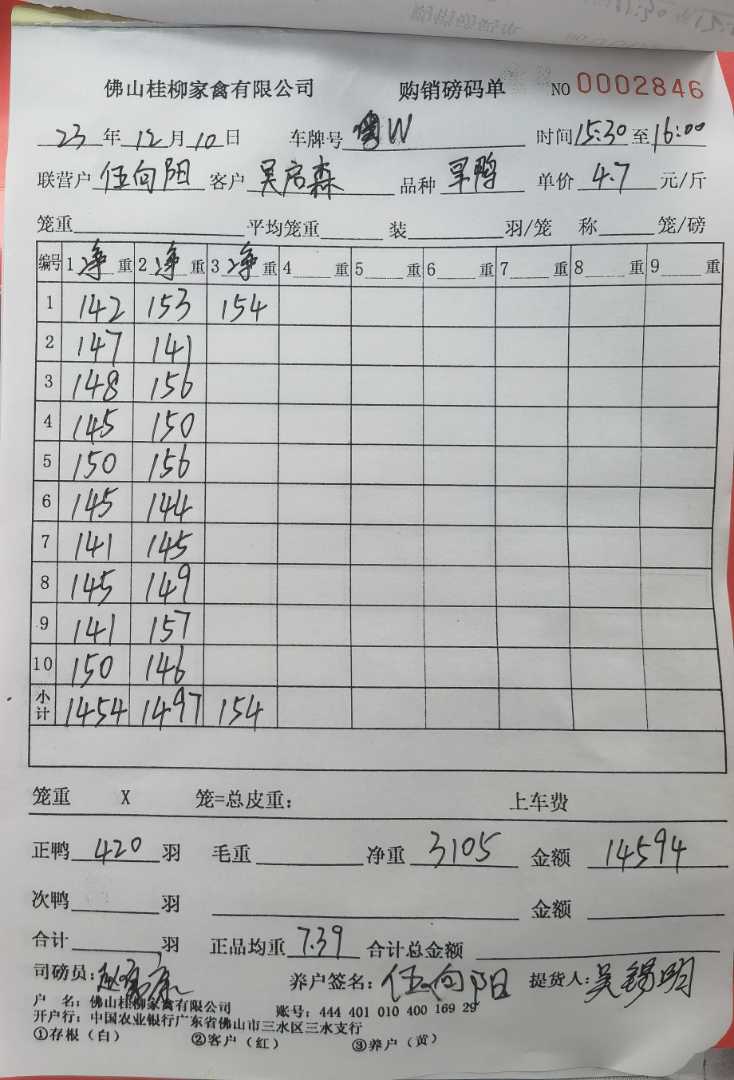 佛山桂柳家禽有限公司 购销磅码单 NO 0002846
23年12月10日 车牌号 粤W 时间15:30至16:00
联营户 伍向阳 客户 吴启森 品种 旱鸭 单价 4.7 元/斤
笼重 平均笼重 装 羽/笼 称 笼/磅
编号 1净重 2净重 3净重 4 重 5 重 6 重 7 重 8 重 9 重
1 142 153 154
2 147 141
3 148 156
4 145 150
5 150 156
6 145 144
7 141 145
8 145 149
9 141 157
10 150 146
小计 1454 1497 154
笼重 X 笼=总皮重: 上车费
正鸭 420 羽 毛重 净重 3105 金额 14594
次鸭 羽 金额
合计 羽 正品均重 7.39 合计总金额
司磅员: 养户签名: 伍向阳 提货人: 吴锡明
户 名: 佛山桂柳家禽有限公司 账号: 444 401 010 400 169 29
开户行: 中国农业银行广东省佛山市三水区三水支行
①存根(白) ②客户(红) ③养户(黄)